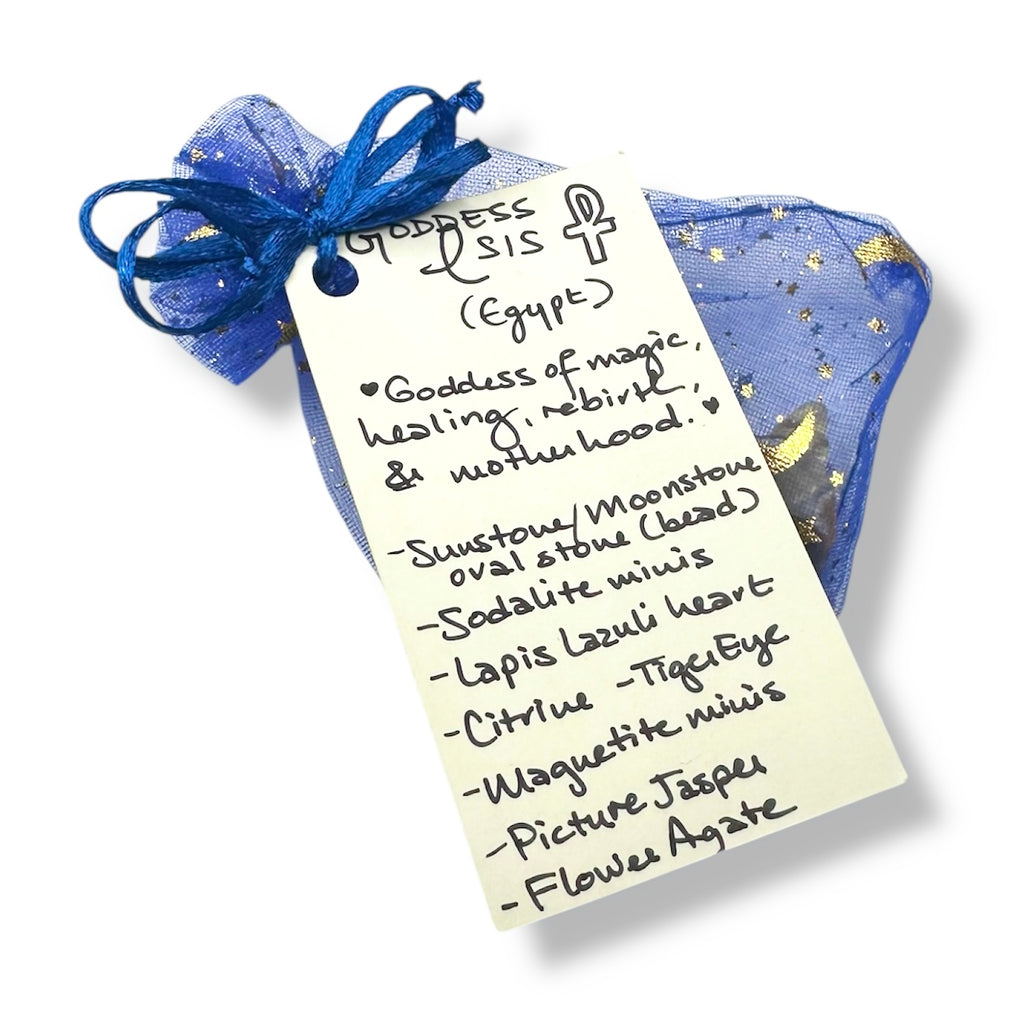 GODDESS
ISIS
(Egypt)
♥Goddess of magic,
healing, rebirth,
& motherhood.♥
-Sunstone/Moonstone
oval stone (bead)
-Sodalite minis
-Lapis Lazuli heart
-Citrine -TigerEye
-Magnetite minis
-Picture Jasper
-Flower Agate